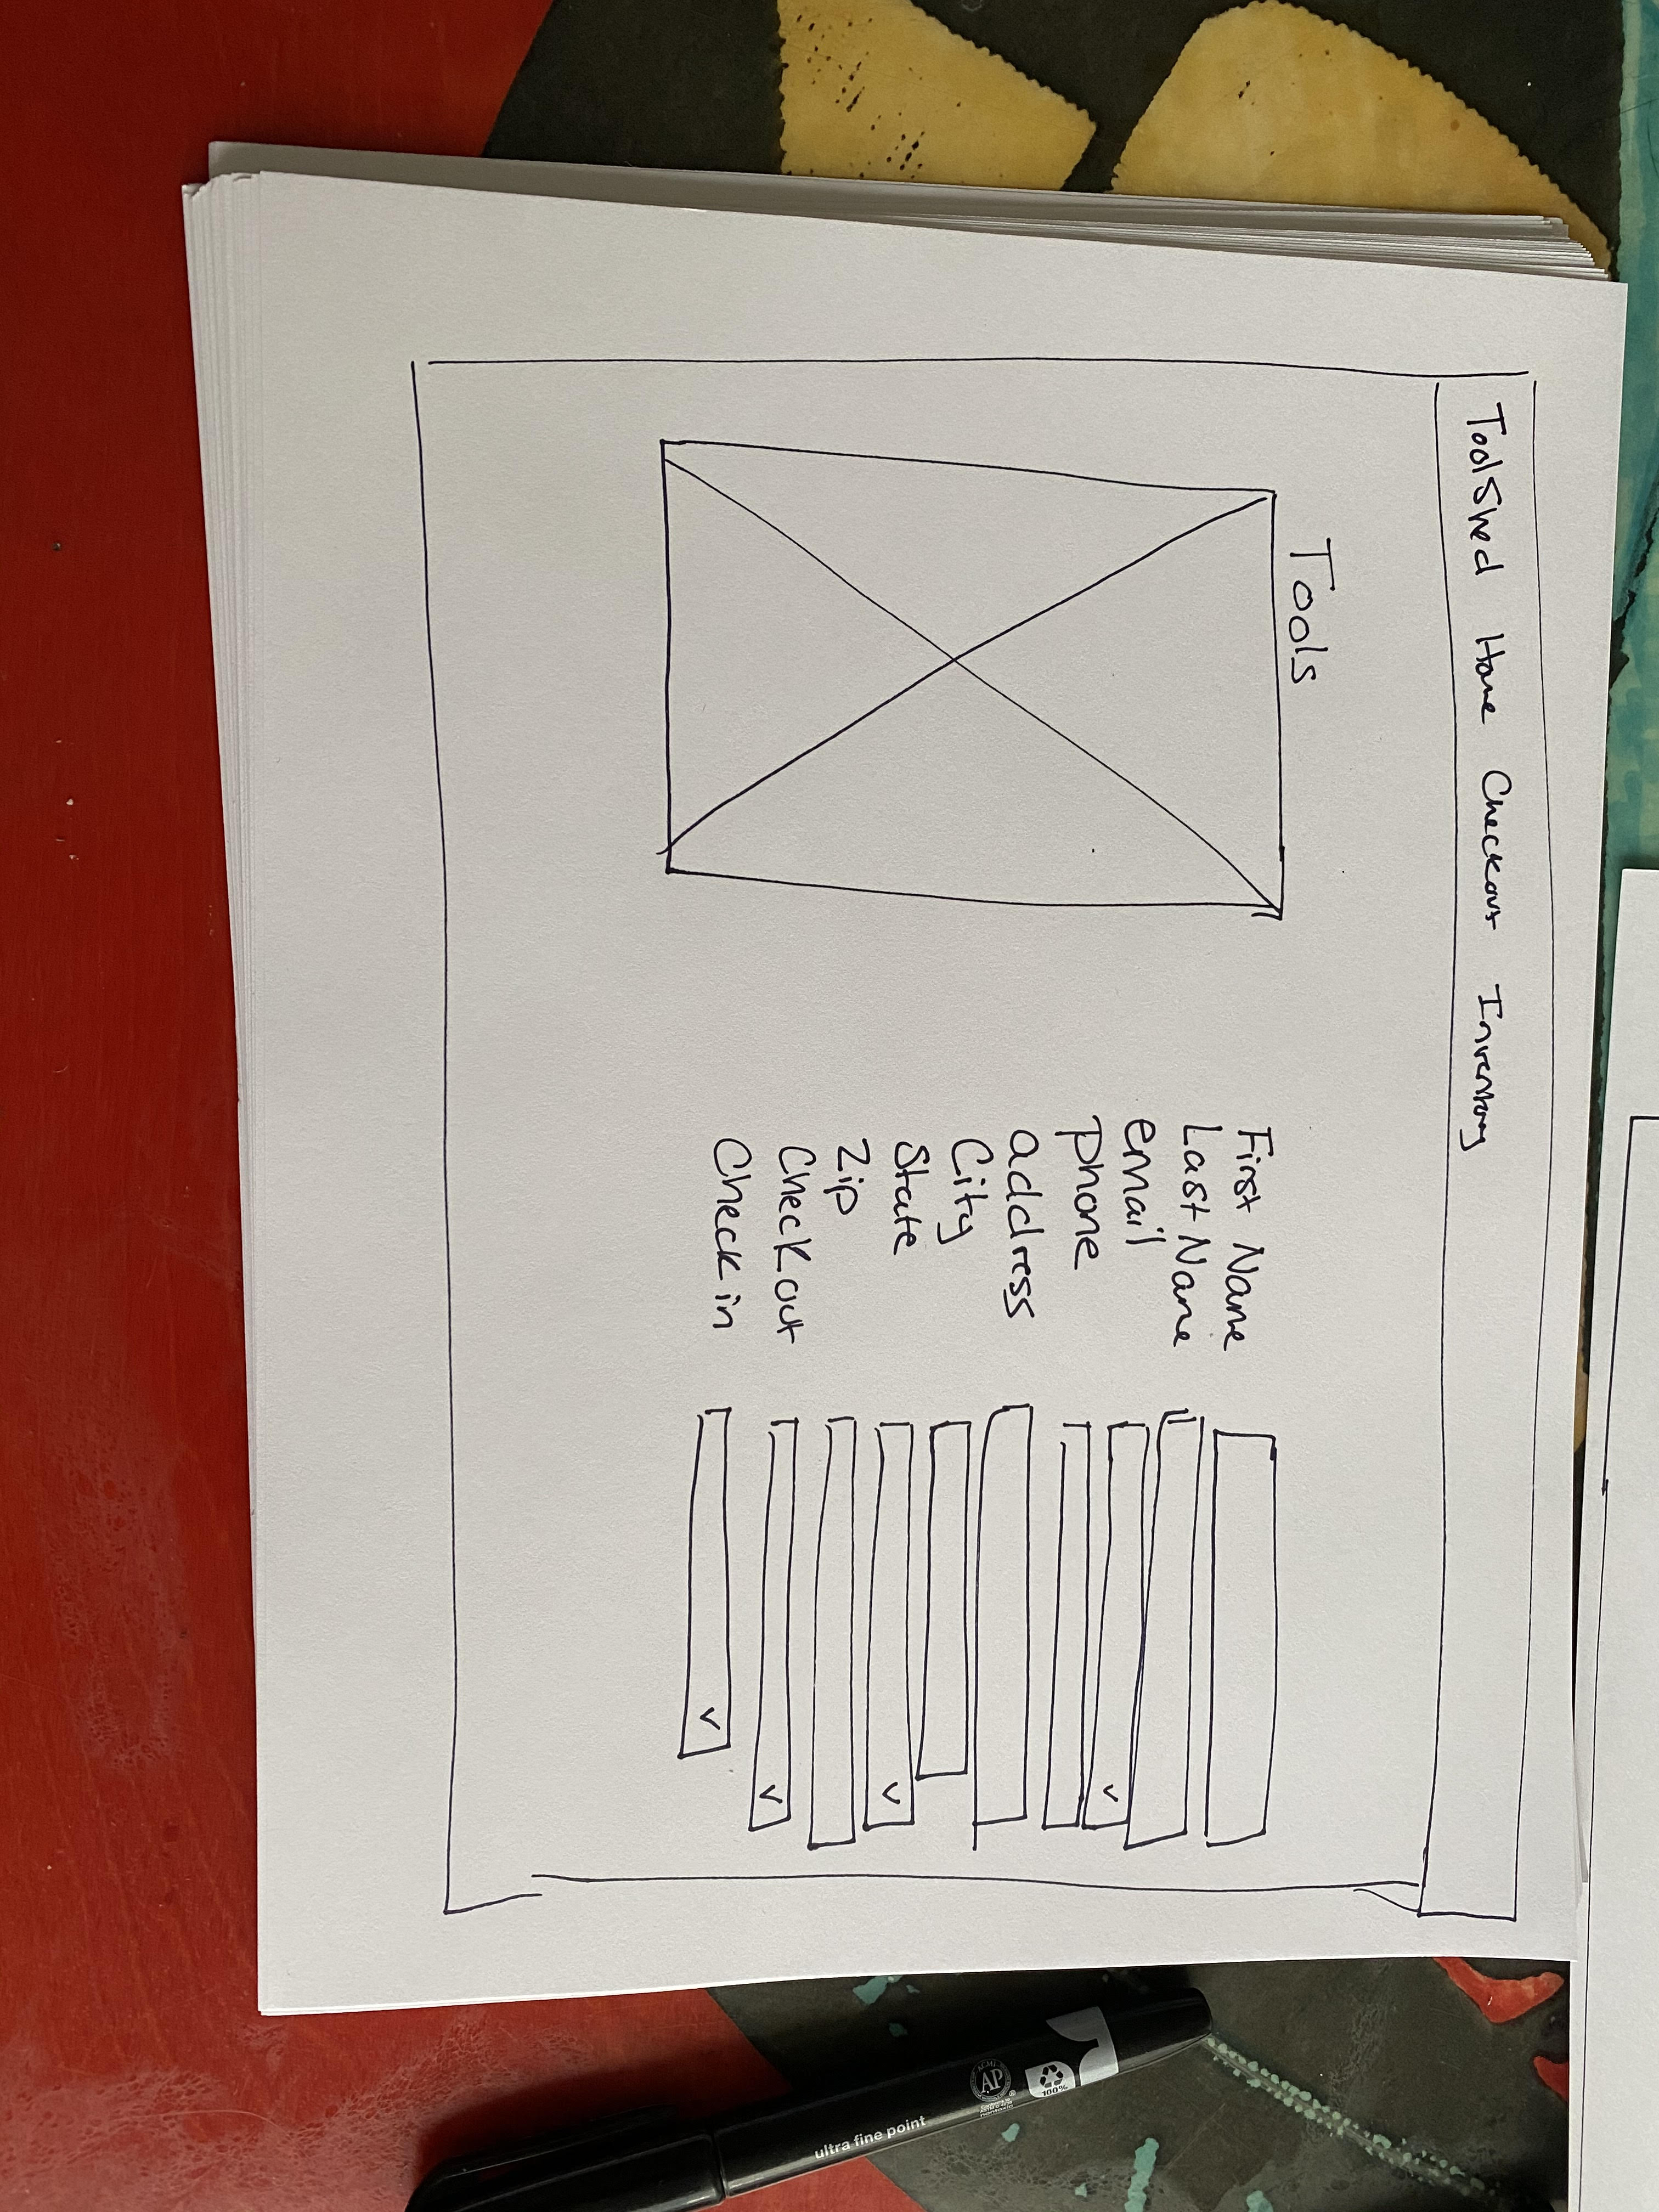 ToolShed Home Checkout Inventory
Tools
First Name
Last Name
email
phone
address
City
State
Zip
Check out
Check in
ultra fine point
AP
100%